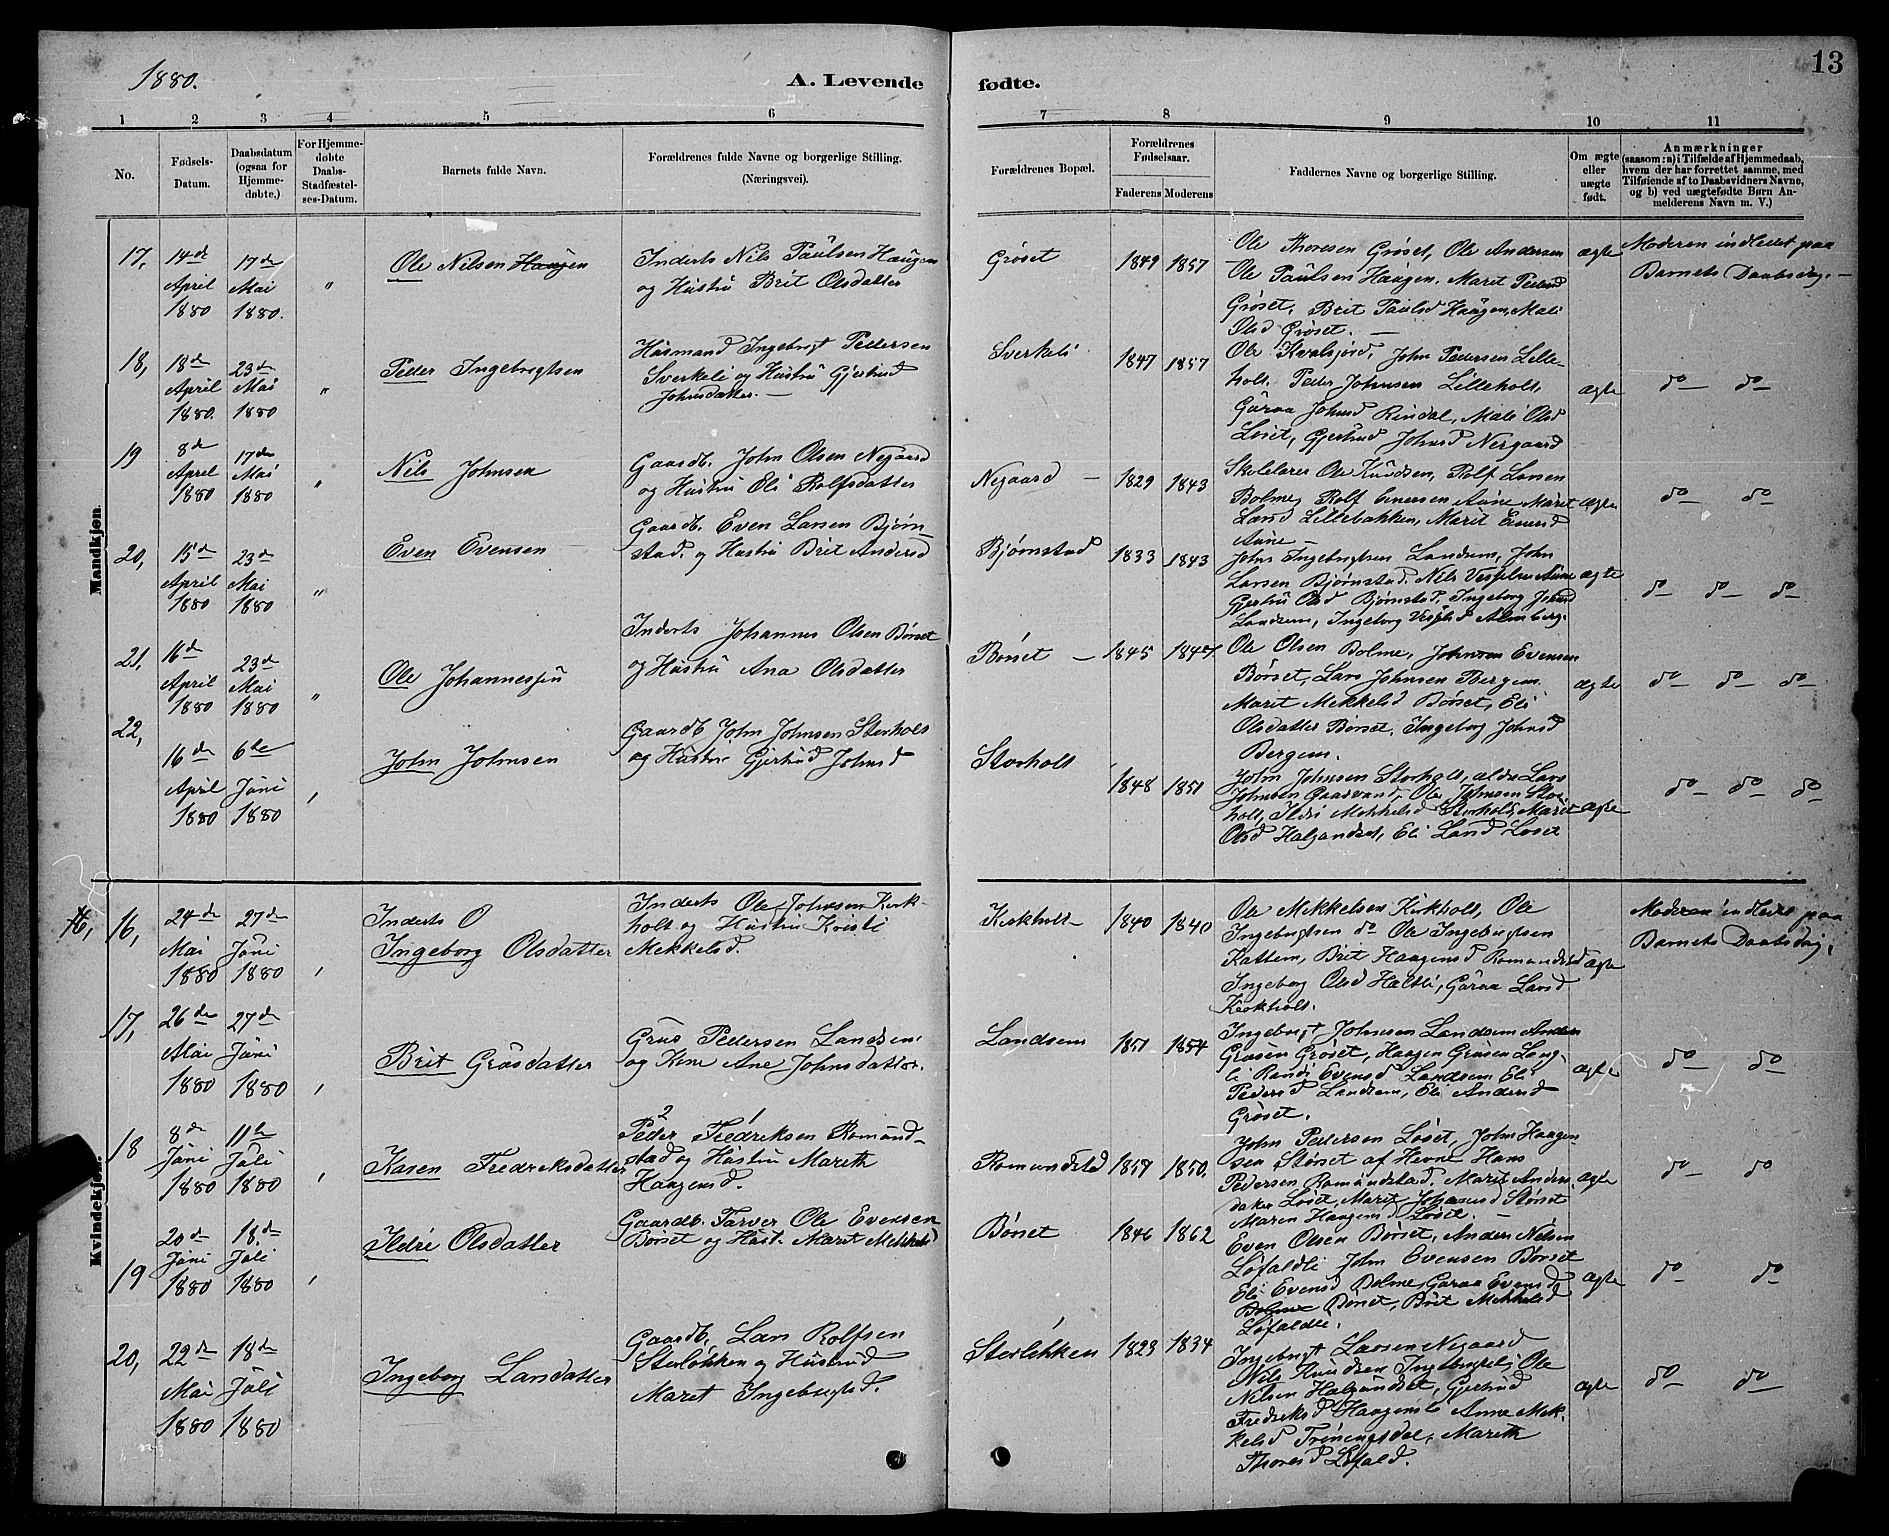 1880.
A. Levende fødte.
13
1 2 3 4 5 6 7 8 9 10 11
No.
Fødsels-
Datum.
Daabsdatum
(ogsaa for
Hjemme-
døbte.)
For Hjemme-
døbte
Daabs-
Stadfæstel-
ses-Datum.
Barnets fulde Navn.
Forældrenes fulde Navne og borgerlige Stilling.
(Næringsvei).
Forældrenes Bopæl.
Forældrenes
Fødselsaar.
Faderens Moderens
Faddernes Navne og borgerlige Stilling.
Om ægte
eller
uægte
født.
Anmærkninger
(saasom: a) i Tilfælde af Hjemmedaab,
hvem der har forrettet samme, med
Tilføiende af to Daabsvidners Navne,
og b) ved uægtefødte Børn An-
melderens Navn m. V.)
Mandkjøn.
17,
14de
April
1880
17de
Mai
1880.
"
Ole Nilsen Haugen
Inderts Nils Paulsen Haugen
og Hustru Brit Olsdatter
Grøset
1849 1857
Ole Thoresen Grøset, Ole Andersen
Ole Paulsen Haugen. Marit Pedersd
Grøset, Brit Paulsd Haugen, Mali
Olsd Grøset. —
ægte
Moderen indledet paa
Barnets Daabsdag. —
18,
18de
April
1880.
23de
Mai
1880
"
Peder Ingebrigtsen
Husmand Ingebrigt Pedersen
Sverkeli og Hustru Gjertrud
Johnsdatter. —
Sverkeli
1847 1857
Ole Kvalsjord, John Pedersen Lille-
holt. Peder Johnsen Lilleholt,
Guraa Johnsd Rindal, Mali Olsd
Løset, Gjertrud Johnsd Nergaard
ægte
do do
19
8de
April
1880
17de
Mai
1880
"
Nils Johnsen
Gaardb. John Olsen Negaard
og Hustru Eli Rolfsdatter
Negaard —
1829 1843
Skolelærer Ole Knudsen, Rolf Larsen
Bolme, Rolf Einersen Aune Marit
Larsd Lillebakken, Marit Einersd
Aune —
ægte
do do
20,
15de
April
1880
23de
Mai
1880
"
Even Evensen
Gaardb. Even Larsen Bjørn-
stad. og Hustru Brit Andersd
Bjørnstad
1833 1843
John Ingebrigtsen Landsem, John
Larsen Bjørnstad. Nils Vesselsen Aune
Gjertru Olsd Bjørnstad, Ingeborg Johnsd
Landsem, Ingeborg Almberg.
ægte
do do do
21,
16de
April
1880
23de
Mai
1880
"
Ole Johannessen
Inderts Johannes Olsen Børset
og Hustru Ana Olsdatter
Børset —
1845 1847
Ole Olsen Bolme, Johnsen Evensen
Børset, Lars Johnsen Bergem.
Marit Mekkelsd Børset, Eli
Olsdatter Børset, Ingeborg Johnsd
Bergem.
ægte
do do do
22,
16de
April
1880
6te
Juni
1880
John Johnsen
Gaardb John Johnsen Storholt
og Hustru Gjertrud Johnsd
Storholt
1848 1851
John Johnsen Storholt, ældre Lars
Johnsen Gaasvand, Ole Johnsen Stor-
holt, Ildri Mekkelsd Storholt, Marit
Olsd Halgundset, Eli Larsd Løset
ægte
do do do
Kvindekjøn.
16, 16,
24de
Mai
1880
27de
Juni
1880
Inderts O
Ingeborg Olsdatter
Inderts Ole Johnsen Kirk-
holt og Hustru Kristi
Mekkelsd.
Kirkholt
1840 1840
Ole Mekkelsen Kirkholt, Ole
Ingebrigtsen do Ole Ingebrigtsen
Kattem, Brit Haagensd Romundstad
Ingeborg Olsd Haltli, Guraa Larsd
Kirkholt.
ægte
Moderen indledet paa
Barnets Daabsdag.
17,
26de
Mai
1880
27de
Juni
1880
Brit Grusdatter
Grus Pedersen Landsem
og Kone Ane Johnsdatter.
Landsem
1851 1854
Ingebrigt Johnsen Landsem Anders
Grusen Grøset, Haagen Grusen Lang-
li Randi Evensd Landsem Eli
Pedersd Landsem, Eli Andersd
Grøset.
ægte
do do
18
8de
Juni
1880
11te
Juli
1880
Karen Fredriksdatter
2 1
Peder Fredriksen Romund-
stad og Hustru Mareth
Haagensd.
Romundstad
1857 1850.
John Pedersen Løset, John Haagen
sen Størset af Hevne Hans
Pedersen Romundstad. Marit Anders
datter Løset, Marit Johansd Størset
Maren Haagensd Løset. —
ægte
do do
19
20de
Juni
1880
18de
Juli
1880
Ildri Olsdatter
Gaardb. Farver Ole Evensen
Børset og Hust. Marit Mekkelsd
Børset
1846 1862
Even Olsen Børset, Anders Nilsen
Løfaldli John Evensen Børset
Eli Evensd Bolme, Guraa Evensd
Bolme Børset, Brit Mekkelsd
Løfaldli.
ægte
do do
20,
22de
Mai
1880
18de
Juli
1880
Ingeborg Larsdatter
Gaardb, Lars Rolfsen
Storløkken og Hustrud
Maret Ingebrigtsd.
Storløkken
1823 1834
Ingebrigt Larsen Negaard
Nils Knudsen Ole
Nilsen Halgundset, Gjertrud
Fredriksd Haagensli Anne Mek-
kelsd Trøningsdal, Mareth
Thoresd Løfald.
ægte
do do